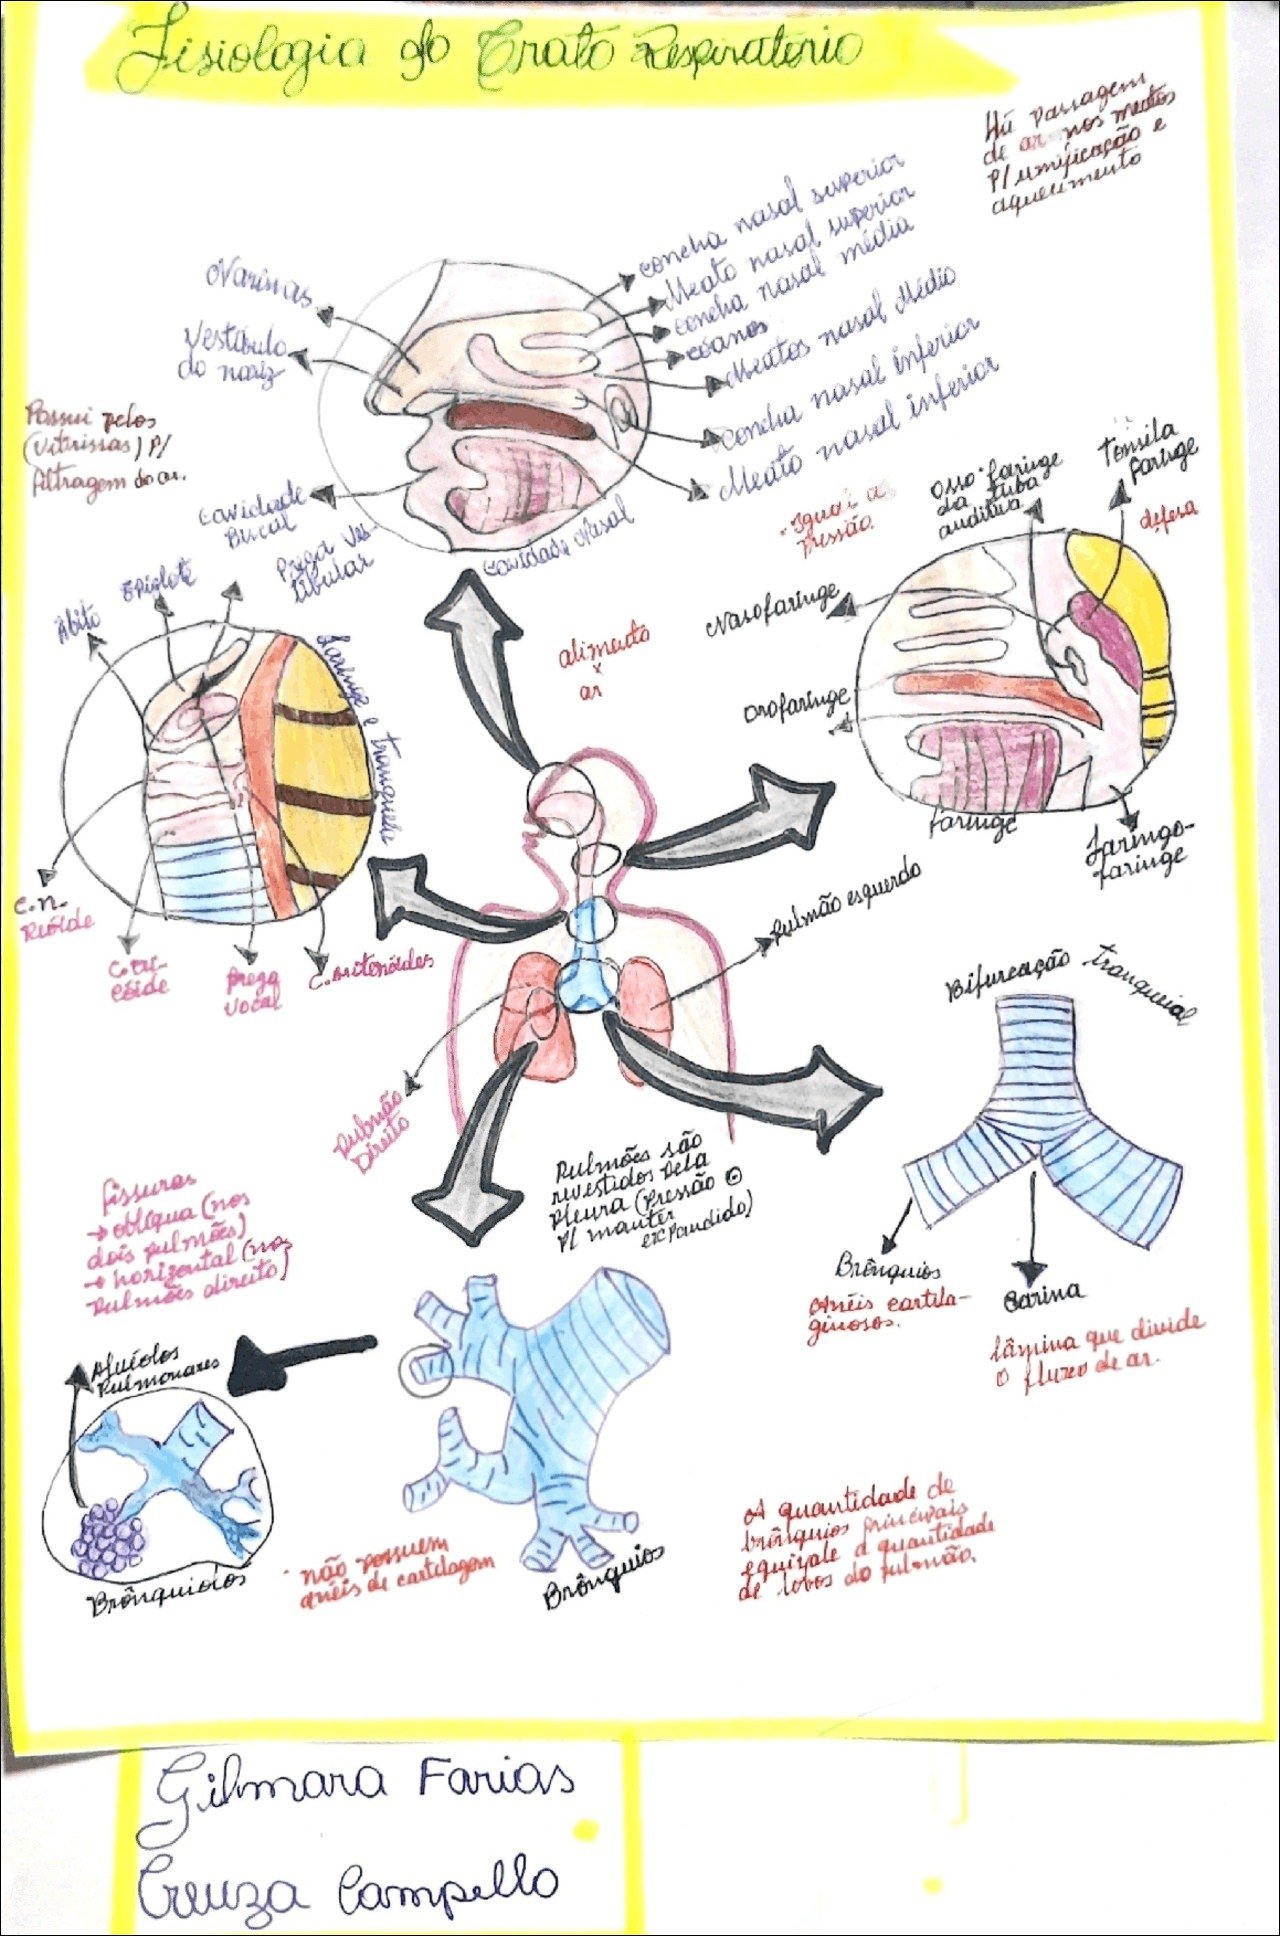 Fisiologia do Trato Respiratório
Há passagem
de ar nos meatos
P/ umificação e
aquecimento
concha nasal superior
Meato nasal superior
concha nasal média
cóanos
Meatos nasal Médio
concha nasal inferior
Meato nasal inferior
Narinas
Vestíbulo
do nariz
Possui pelos
(Vibrissas) P/
filtragem do ar.
Cavidade
Bucal
Cavidade Nasal
Ádito
Epiglote
Prega Ves-
tibular
Laringe e tranqueia
C.n.
C. aritenóides
Prega
Vocal
alimento
x
ar
Igual a
Pressão.
da tuba
auditiva
Tonsila
faringe
defesa
Nasofaringe
Orofaringe
faringe
Laringo-
faringe
Pulmão esquerdo
Pulmão
Direito
Bifurcação tranqueial
Brônquios
Anéis cartila-
ginosos.
Carina
lâmina que divide
o fluxo de ar.
Pulmões são
revestidos pela
pleura (Pressão ⊝
P/ manter
expandido)
fissuras
→ oblíqua (nos
dois pulmões)
→ horizontal (nos
Pulmões direito)
Alvéolos
Pulmonares
Brônquiolos
· não possuem
anéis de cartilagem
Brônquios
A quantidade de
brônquios principais
equivale á quantidade
de lobos do pulmão.
Gilmara Farias
Creuza Campello